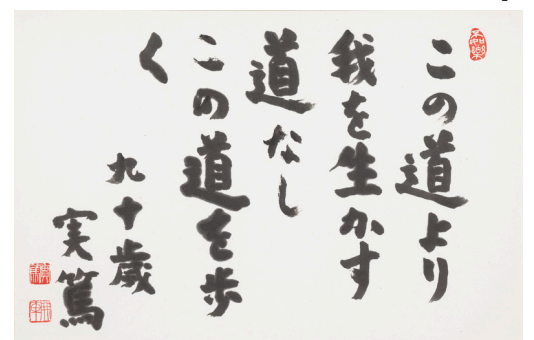 この道より
我を生かす
道なし
この道を歩
く
九十歳
実篤